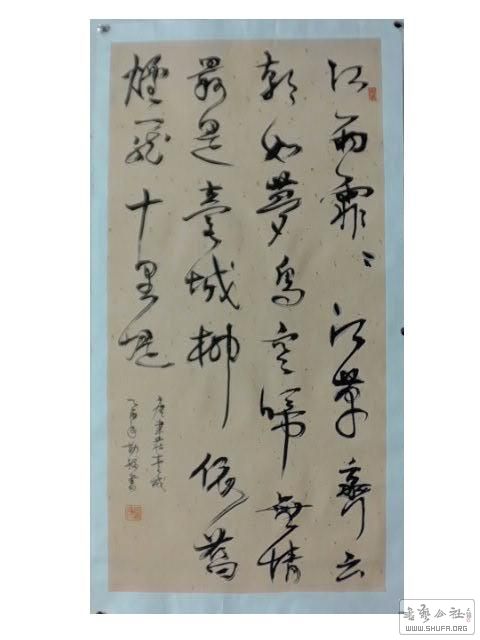 江雨霏〻江草齊六
朝如夢鳥空啼無情
最是臺城柳依舊
煙籠十里堤
唐韋莊臺城
乙酉年書
书艺公社
WWW.SHUFA.ORG